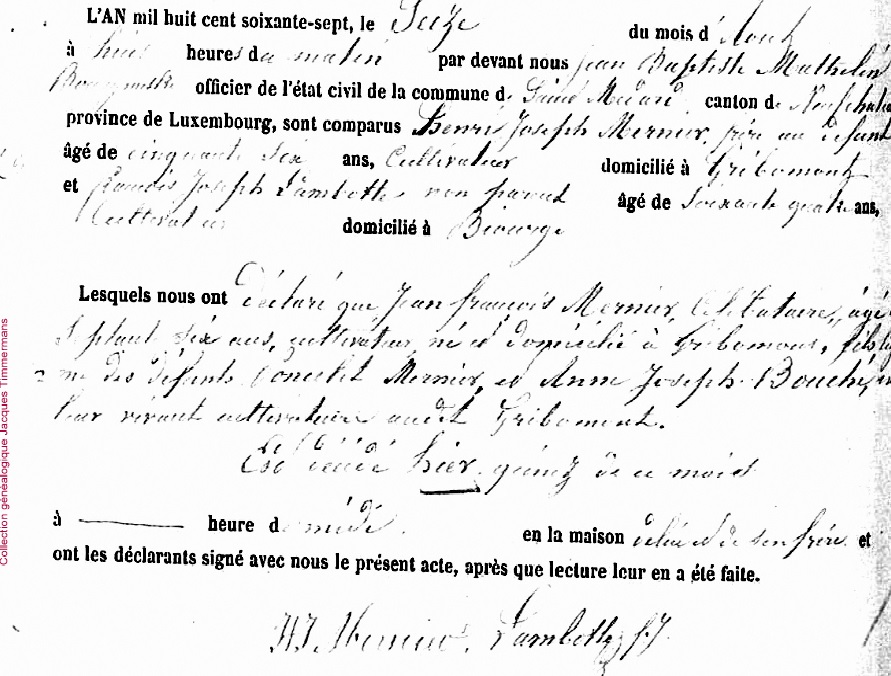 L'AN mil huit cent soixante-sept, le Seize du mois d'Aout
à huit heures du matin par devant nous Jean Baptiste Mathelin
officier de l'état civil de la commune de Saint Médard canton de Neufchateau
province de Luxembourg, sont comparus Henri Joseph Mernier, frère au défunt
âgé de cinquante six ans, Cultivateur domicilié à Gribomont
et François Joseph Lambotte non parent âgé de soixante quatre ans,
Cultivateur domicilié à Biourge
Lesquels nous ont déclaré que Jean françois Mernier, Célibataire, âgé
Septante six ans, cultivateur, né et domicilié à Gribomont, fils
des défunts Poncelet Mernier, et Anne Joseph Bouché,
leur vivant cultivateurs audit Gribomont.
Est décédé hier quinze de ce mois
à heure de midi. en la maison de son frère et
ont les déclarants signé avec nous le présent acte, après que lecture leur en a été faite.
HJ Mernier. Lambotte fJ
Collection généalogique Jacques Timmermans